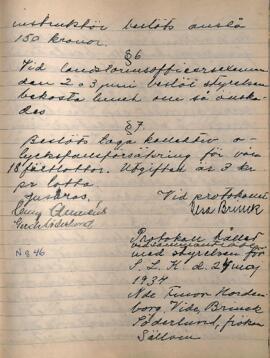 instruktör beslöts anslå
150 kronor.
§6
Vid landstormsofficersexamen
den 2 o 3 juni beslöt styrelsen
bekosta lunch om så önska-
des
§7
Beslöts taga kollektiv o-
lycksfallsförsäkring för våra
18 fältlottor. Utgiften är 3 kr
pr lotta
Justeras,
Vid protokollet
Vera Brunck
Gerda Söderlund
N:o 46
Protokoll hållet
med styrelsen för
S. L. K. d. 29 maj
1934
Nde Fruor Norden-
borg, Vide, Brunck
Söderlund, fröken